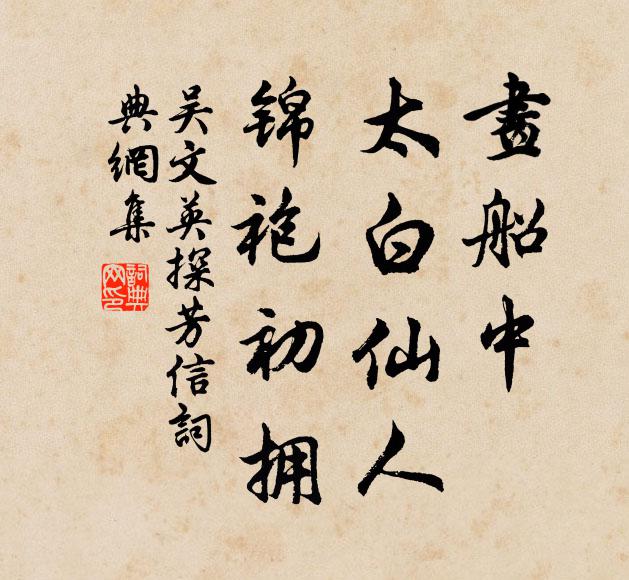 畫船中
太白仙人
锦袍初拥
吴文英探芳信詞
典網集
詞典
网印